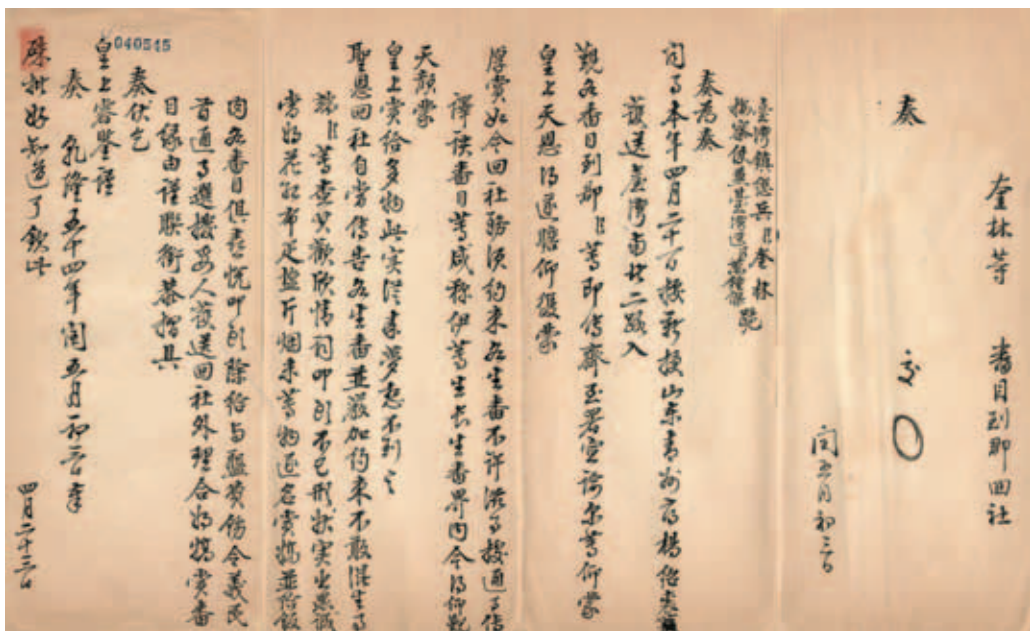 奎林等 番目到郡回社
奏
閏五月初三日
臺灣鎮總兵奎林
按察使銜臺灣道萬鍾傑 跪
奏為奏
聞事本年四月二十一日接新授山東青州府楊紹裘
護送臺灣南北二路入
覲各番目到郡等即傳齊至署宣諭尔等仰蒙
皇上天恩得遂瞻仰優蒙
厚賞如今回社務須約束各生番不許滋事據通事傳
譯該番目等咸稱伊等生長生番界內今得仰觀
天顏蒙
皇上賞給多物此實從來夢想不到之
聖恩回社自當傳告各生番並嚴加約束不敢混生事
端等查其歡欣情詞叩頭不已形狀實出懇誠
當將花紅布疋鹽斤烟末等物逐名賞犒並給飯
肉各番目俱喜悅叩頭除給與盤費飭令義民
首通事選撥妥人護送回社外理合將犒賞番
目緣由謹聯銜恭摺具
奏伏乞
皇上睿鑒謹
040545
奏 乾隆五十四年閏五月初三日奉
硃批好知道了欽此
四月二十三日